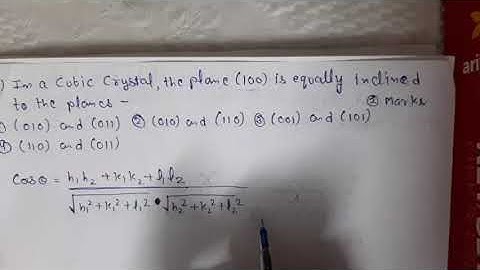 ) In a Cubic Crystal, the plane (100) is equally inclined
to the planes - ② Marks
① (010) and (011) ② (010) and (110) ③ (001) and (101)
④ (110) and (011)
Cosθ = h₁h₂ + k₁k₂ + l₁l₂
√h₁² + k₁² + l₁² • √h₂² + k₂² + l₂²
ari